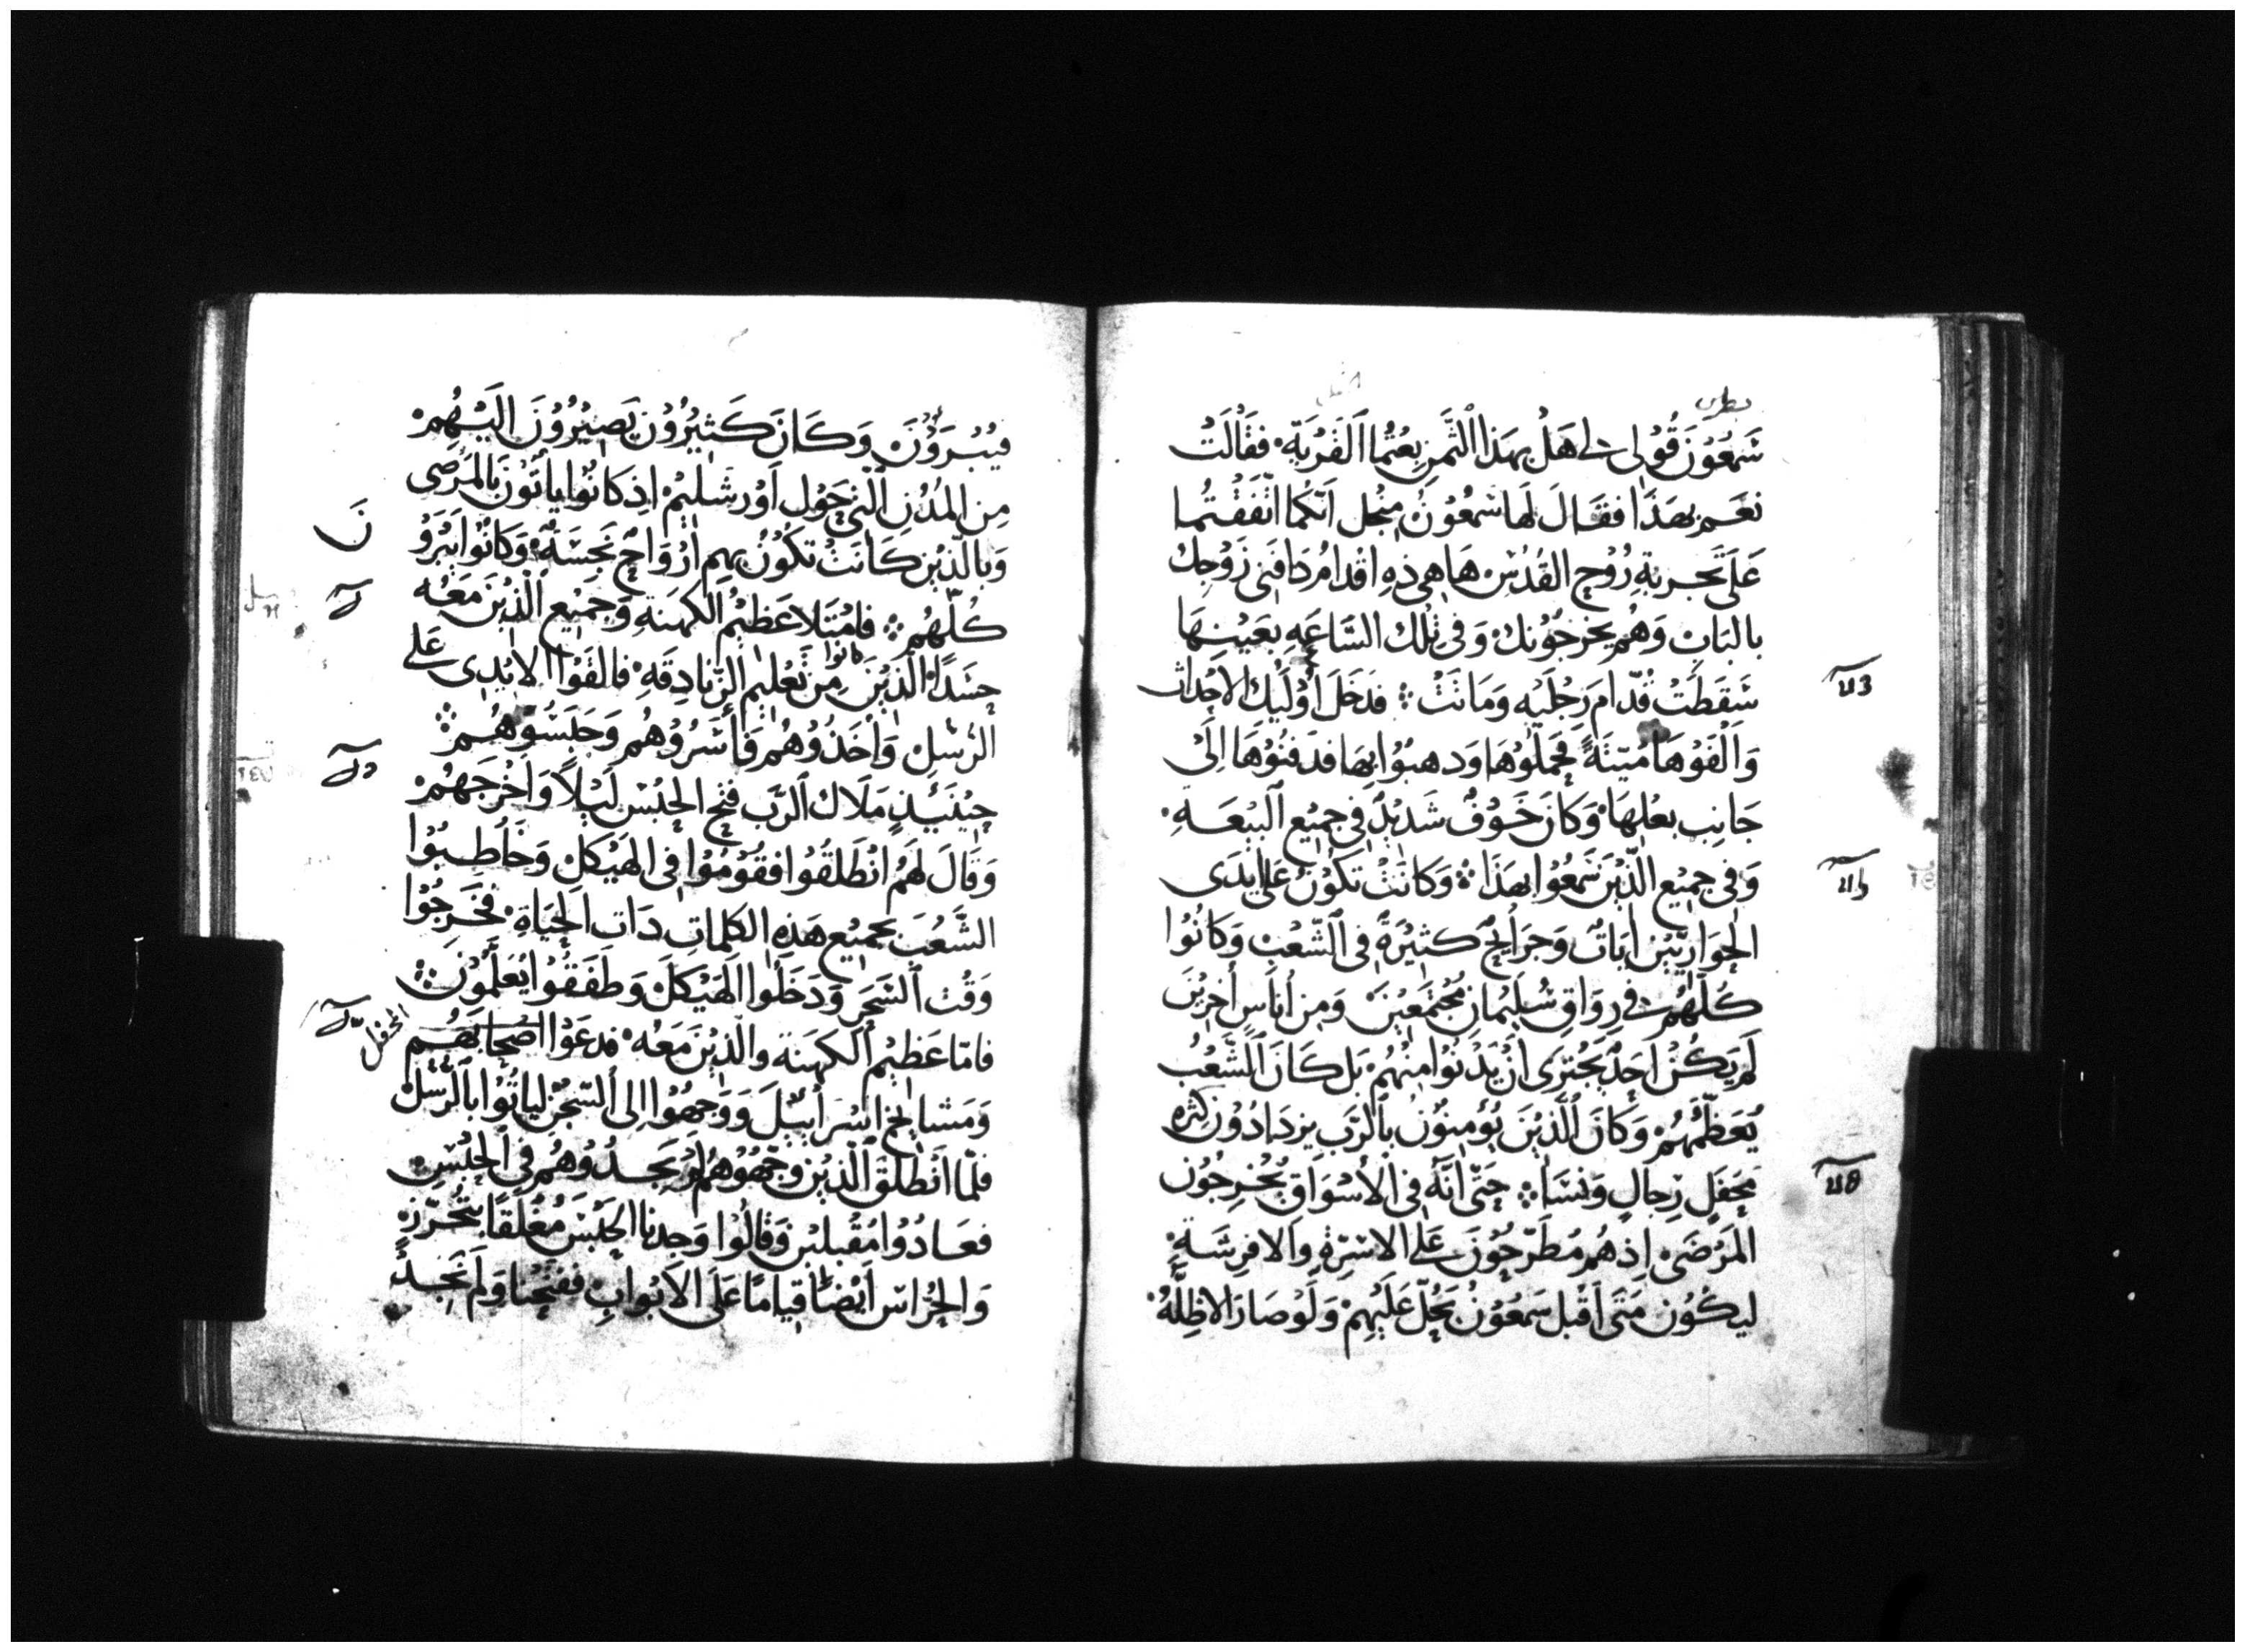 بطرس
شَمعُوْنَ قُوْلى لى هَلْ بهَذا الثَّمَنِ بِعْتُما ٱلقَرْيَةَ. فقَالَتْ
نعَم بهَذَا فقَالَ لَها شمعُوْنُ مِنْجل اَنّكُما اتّفَقْتُما
عَلَى تَجربةِ رُوْحِ القُدُسْ هَا هِى ذِهِ اقْدامُ دَافنِى زَوْجِك
بالبَابِ وَهُم يُخرجُوْنكْ وَفى تْلك السَّاعَهِ بعَيْنِهَا
سَقَطَتْ قُدّامَ رِجْلَيْهِ وَمَاتَتْ ۞ فدَخَلَ أُوْلَيِك الاحْداث
وَاَلْفَوْهَا مُيّتَةً فحَملُوْهَا وَدهبُوْا بهَا فدَفنُوْهَا اِلَى
جَانِبِ بعْلِهَا وَكَانَ خَوْفٌ شَدِيْدٌ فى جمِيْعِ ٱلبِيْعَةِ.
وَفى جمِيْعِ الّذِيْنَ سَمعُوْا بهَذَا ۞ وَكانَتْ تكُوْنُ عَلى ايدَى
الحوَاريّيْن ايَاتٌ وَجرَايحٌ كثِيْرَةٌ فى ٱلشّعْبِ وَكانُوْا
كُلّهُمْ فى رِوَاقِ سُلَيْمَانِ مُجْتَمَعِيْنَ وَمِن أُنَاسٍ أُخَرِيْنَ
لَم يَكُنْ اَحَدٌ يَجْتَرِى اَنْ يَدْنُوْا مِنْهُمْ بَل كَانَ ٱلشَّعْبُ
يُعَظّمُهُمْ وَكَانَ ٱلّذِيْنَ يُؤمِنُوْنَ بٱلرَّبِ يزدَادُوْن كثره
مَحْفَلِ رِجالٍ وَنِسَا ۞ حَتّى انّهُ فى الأسْوَاقِ يُخْرِجُوْن
المَرْضَى اِذهُم مُطَرّحُوْنَ عَلى الاسِرّةِ وَالافرِشَةِ
ليكُوْن مَتَى اَقْبل سَمعُوْنُ يَحُلّ عَلَيْهِمْ وَلَوْ صَارَ الاظِلّهُ
فيُبْرَوْنَ وَكَانَ كَثِيْرُوْن يَصِيْرُوْنَ اليْهِمْ
مِن المُدُنِ ٱلّتى حَوْل اَوْرشَلِيْم اِذكانُوا ياتُوْنَ بالمَرْضِى
وَبالّذِيْن كَانَتْ تكُوْنُ بهِم ارْوَاحٌ نَجِسَةٌ وَكانُوْا يبْرَوْ
كُلّهُمْ ۞ فامْتَلا عَظِيْمُ الكهَنةِ وَجمِيْع ٱلّذِيْنَ مَعَه
حسَدًا الّذِيْنَ كانوا مِن تَعْلِيْمِ الزّنادِقَهِ فالقَوْا الايْدِى عَلى
الرُسُلِ وَاخَذُوْهُم وَأَسَرُوْهُم وَحَبَسُوْهُمْ ۞
حِيْنَيْذٍ مَلَاك ٱلرَّب فتح الحَبْسْ لَيْلًا وَاَخْرَجَهُمْ
وَقَالَ لهُم انْطَلقُوْا فقُوْمُوْا فى الهَيْكَلِ وَخَاطِبُوْا
الشَّعْبَ بجميْعِ هَذِهِ الكلماتِ دَات الحَيَاةِ. فخَرَجُوْا
وَقْت ٱلسَحَرِ وَدَخَلُوْا الهَيْكَلَ وَطَفَقُوْا يُعَلّمُوْنَ ۞
فامّا عَظيْمُ الكهَنة والّذِيْنَ مَعَه. فدعَوْا اصْحابَهُم المحفل
وَمَشايخ اسْرَاييْلَ وَوَجهُوْا اِلى ٱلسّجْنْ لياتُوْا بٱلرّسُلْ
فلمّا انْطَلقَ ٱلّذِيْن وجّهُوْهُم لمْ يَجدُوْهُم فى ٱلحَبْسِ
فعَادُوْا مُقْبلِيْن وَقَالُوْا وَجدْنا الحَبْسَ مُغْلَقًا بتَحَرّزْ
وَالحُرّاسَ اَيْضًا قِيامًا عَلَى الاَبْوابِ ففتَحْنا وَلَم نَجدْ